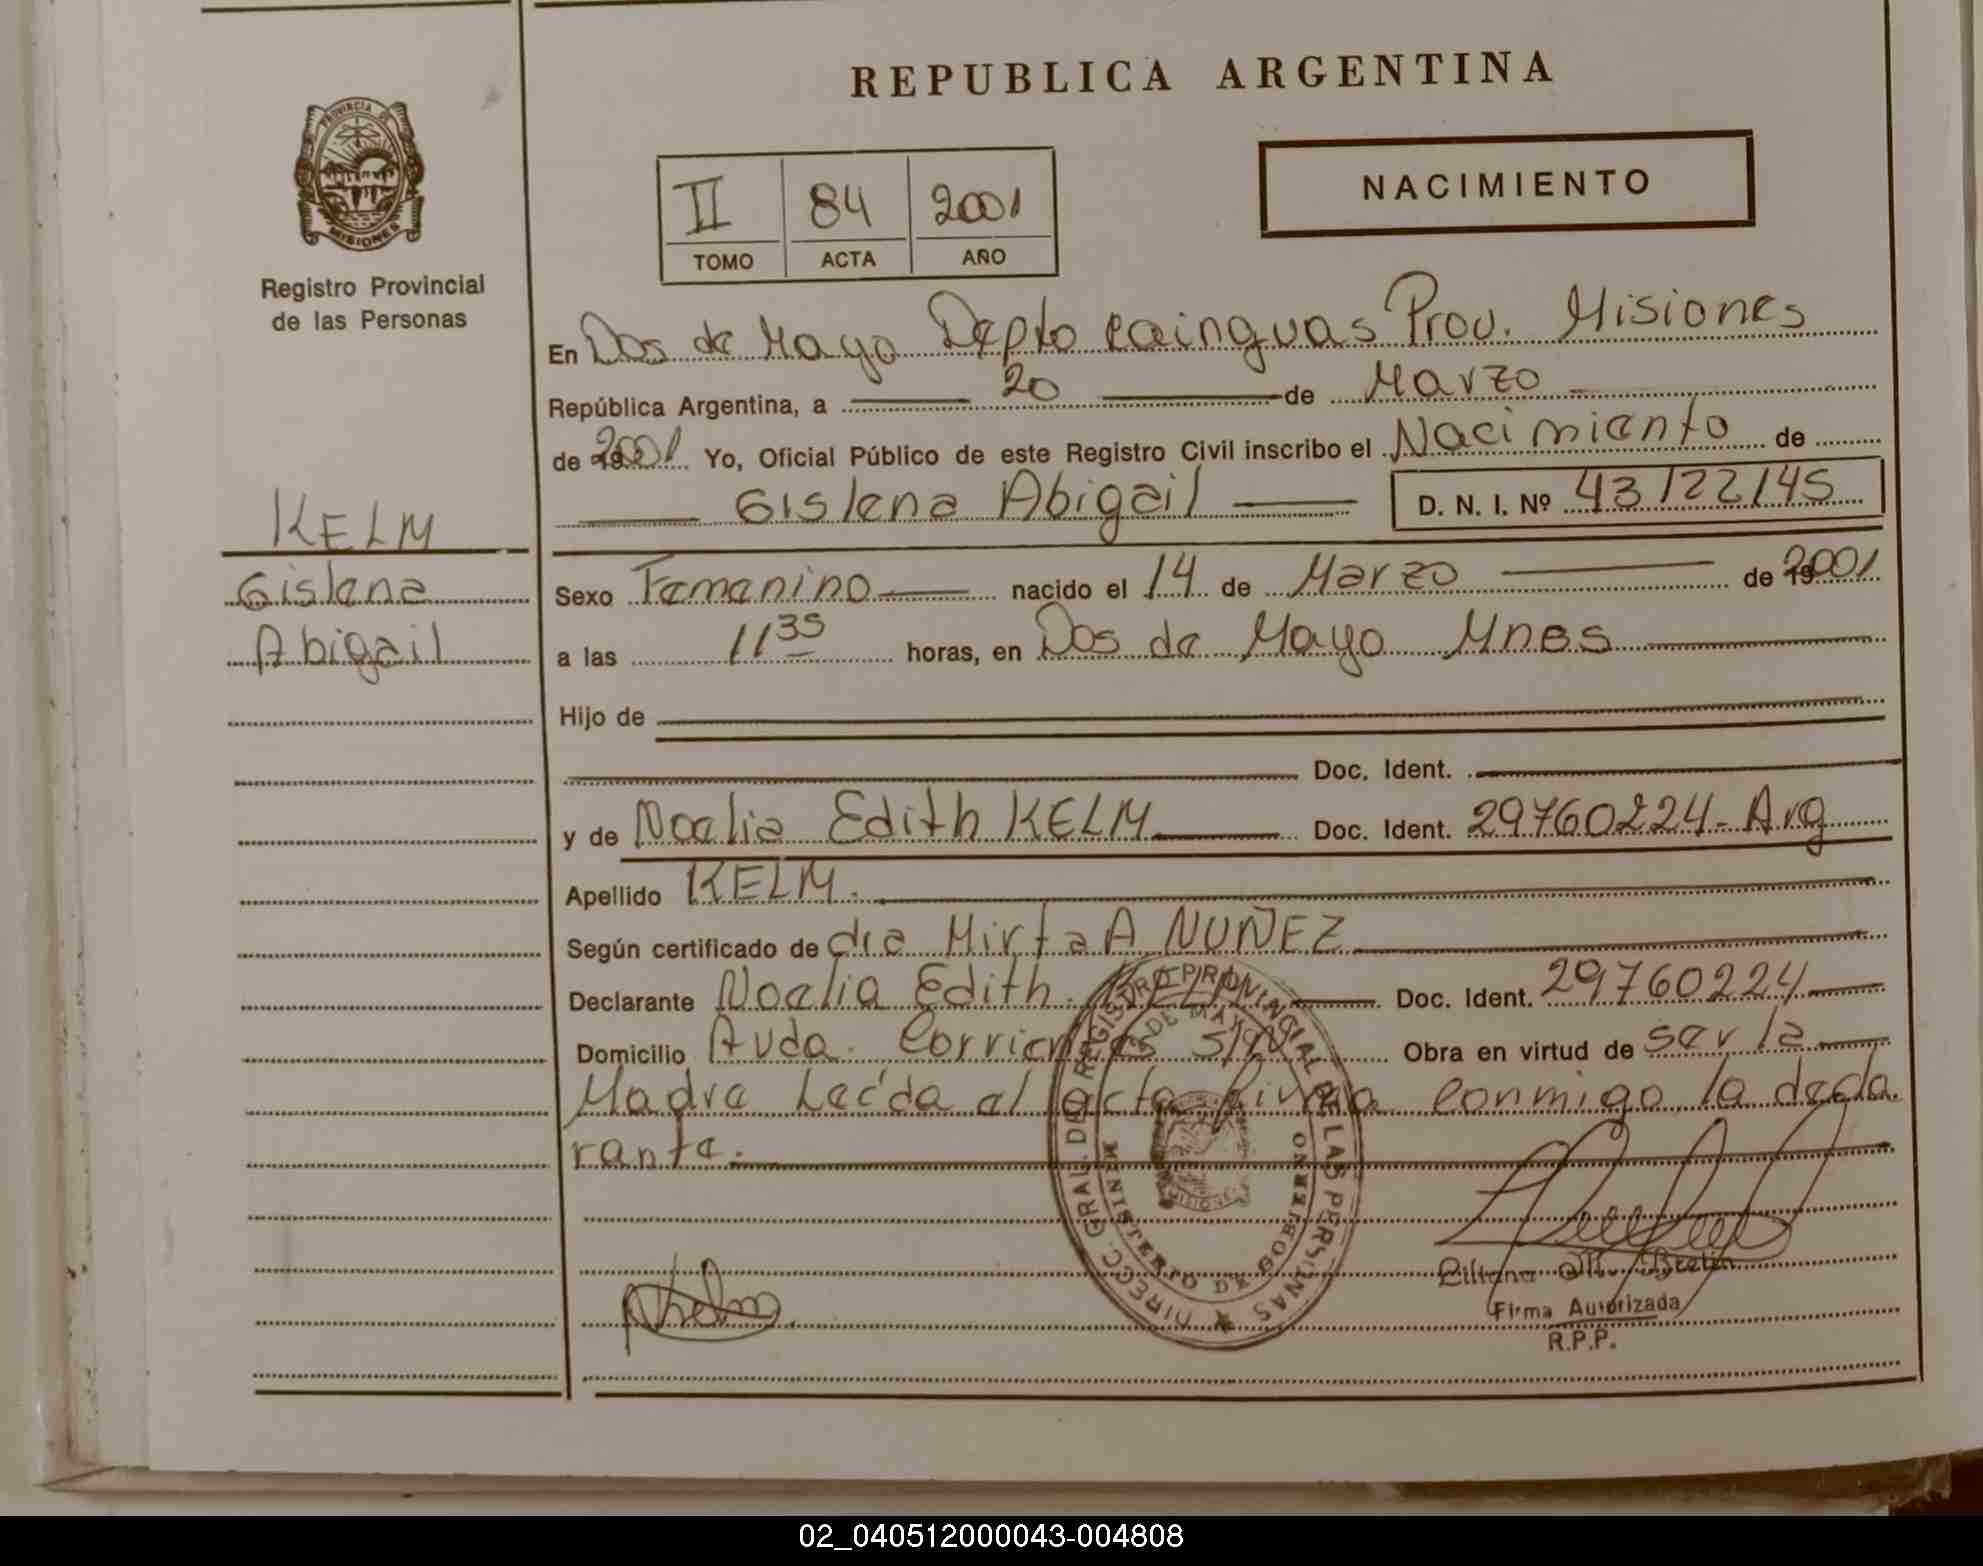 REPUBLICA ARGENTINA
PROVINCIA DE
MISIONES
Registro Provincial
de las Personas
II 84 2001
TOMO ACTA AÑO
NACIMIENTO
En Dos de Mayo Depto Cainguas Prov. Misiones
República Argentina, a 20 de Marzo
de 2001 Yo, Oficial Público de este Registro Civil inscribo el Nacimiento de
Gislena Abigail D. N. I. Nº 43122145
KELM
Gislena
Abigail
Sexo Femenino nacido el 14 de Marzo de 2001
a las 11 35 horas, en Dos de Mayo Mnes
Hijo de
Doc. Ident.
y de Noelia Edith KELM Doc. Ident. 29760224-Arg
Apellido KELM.
Según certificado de dra Mirta A NUÑEZ
Declarante Noelia Edith. KELM Doc. Ident. 29760224
Domicilio Avda. Corrientes s/nº Obra en virtud de ser la
Madre Leída el acta firma conmigo la decla
rante.
DIRECC. GRAL. DEL REGISTRO PROVINCIAL DE LAS PERSONAS
DE MAYO
MINISTERIO DE GOBIERNO
MISIONES
NKelm
Liliana M. Brelin
Firma Autorizada
R.P.P.
02_040512000043-004808